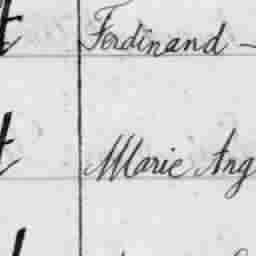 Ferdinand –
Marie Ang